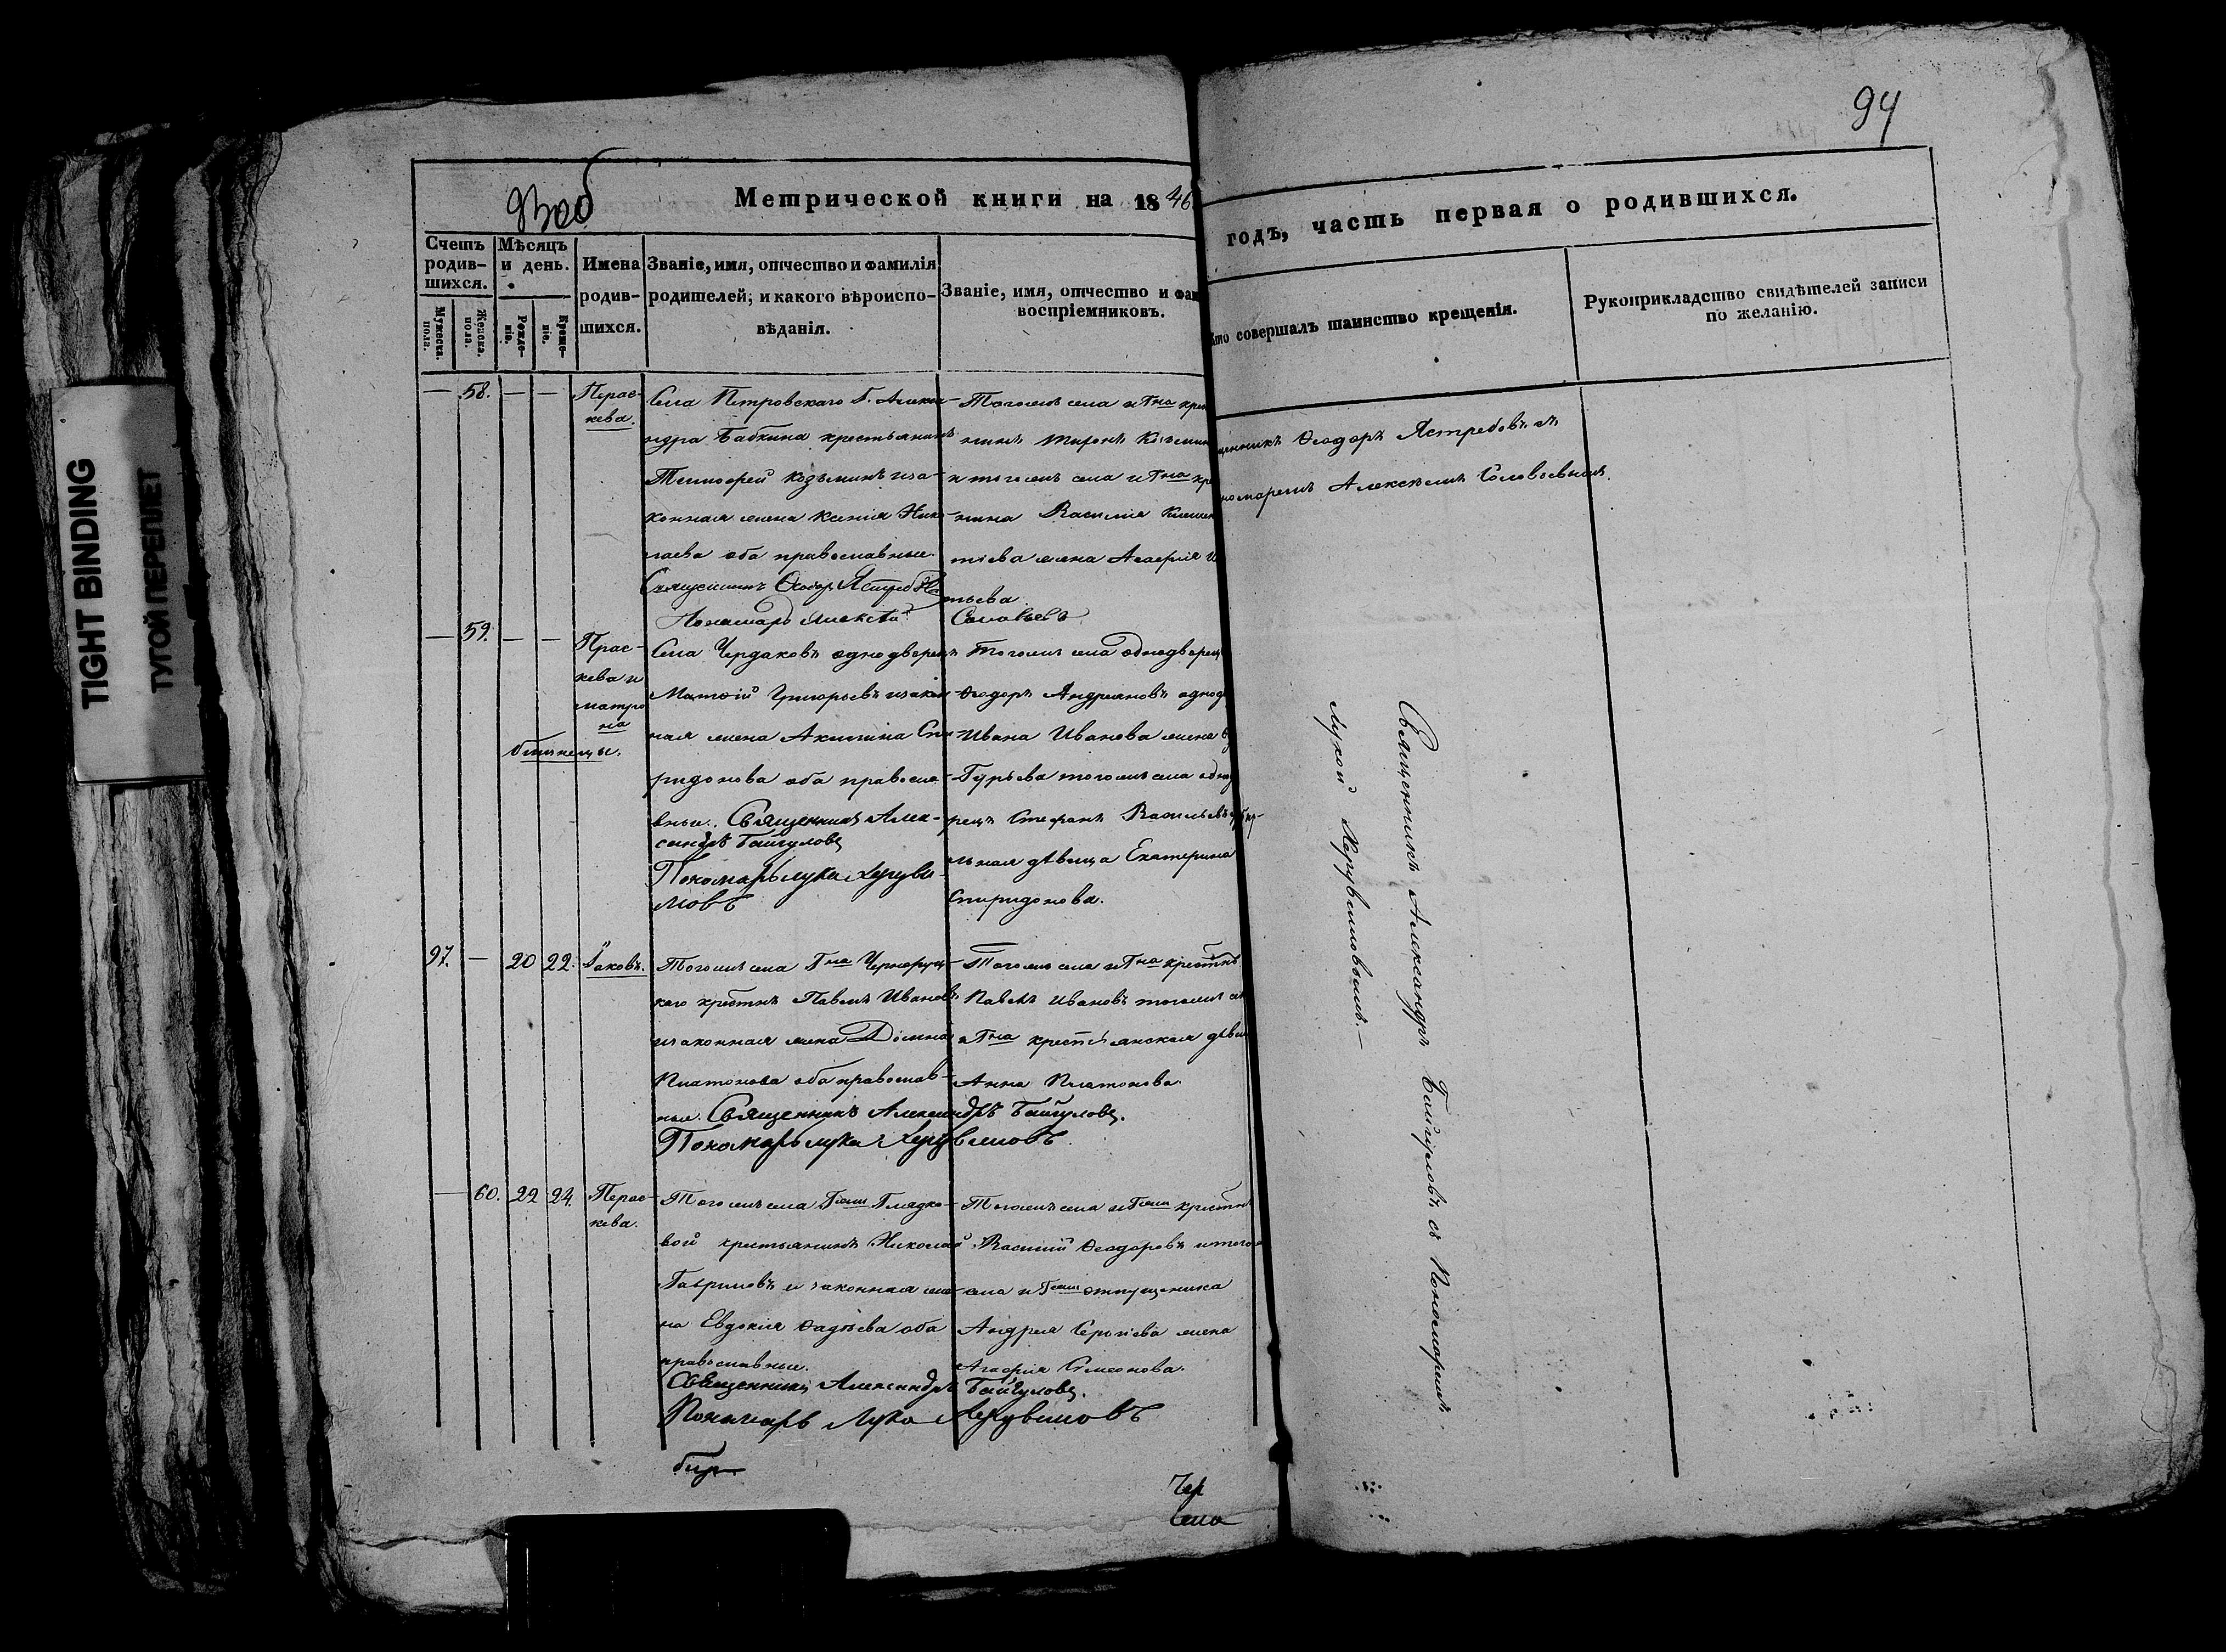 94
Метрической книги на 1846
годъ, часть первая о родившихся.
Счетъ родив-шихся.
Мужеска. пола.
Женска. пола.
Мѣсяцъ и день.
Рожде-ніе.
Креще-ніе.
Имена родив-шихся.
Званіе, имя, отчество и фамилія
родителей, и какого вѣроиспо-
вѣданія.
Званіе, имя, отчество и фам
воспріемниковъ.
Кто совершалъ таинство крещенія.
Рукоприкладство свидѣтелей записи
по желанію.
— 58. — —
Парас-
кева.
Села Петровскаго Г. Алекса-
ндра Бабкина крестьянинъ
Тимофей Козьминъ и за-
конная жена Ксенія Нико-
лаева оба православные.
Священникъ Ѳеодор Ястребов
Пономарь Алексѣй Соловьевъ
Тогожъ села и Гна крес
нинъ Миронъ Козьмин
и тогожъ села и Гна кр
нина Василія Климен
тіева жена Агафія И
тьева
щенникъ Ѳеодоръ Ястребовъ съ
номаремъ Алексѣемъ Соловьевымъ.
— 59. — —
Прас-
кева и
матро
на
близнецы.
Села Чердаковъ однодворецъ
Матѳій Григорьевъ и закон
ная жена Акилина Спи
ридонова оба правосла-
вные. Священникъ Алек-
сандръ Байгуловъ
Пономарь Лука Херуви-
мовъ
Тогожъ села однодворец
Ѳеодоръ Андреяновъ одно
Ивана Иванова жена
Гурьева тогожъ села одно
рецъ Стефанъ Васильевъ
льная дѣвица Екатерина
Спиридонова.
97. — 20 22.
Іаковъ.
Тогожъ села Гна
каго крестнъ Павелъ Ивановъ
и законная жена Домна
Платонова оба православ-
ные. Священникъ Александръ Байгуловъ.
Пономарь Лука Херувимовъ.
Тогожъ села и Гна крестнъ
Павелъ Ивановъ тогожъ се
и Гна крестьянская дѣви
Анна Платонова.
Священникъ Александръ Байгуловъ съ Пономаремъ
Лукой Херувимовымъ.—
— 60. 22 24.
Парас-
кева.
Тогожъ села Гжи Гладко-
вой крестьянинъ Николай
Гавриловъ и законная же-
на Евдокія Фадѣева оба
православные.
Священникъ Александръ Байгуловъ.
Пономарь Лука Херувимовъ
Тогожъ села и Гжи крестнъ
Василій Ѳеодоровъ и тогож
села и Гжи отпущеника
Андрея Сергіева жена
Агафія Симеонова.
TIGHT BINDING
ТУГОЙ ПЕРЕПЛЕТ